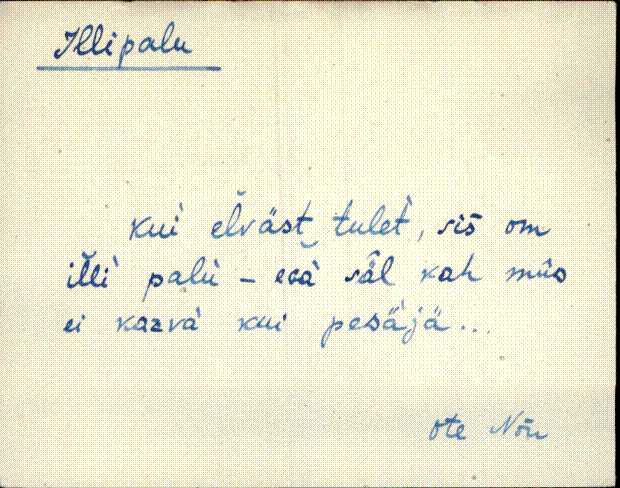 Illipalu
kui elväst tulet, sis om
illi palu – egà säl kah muo
ei kazva kui pesäjä...
Ote Nõu